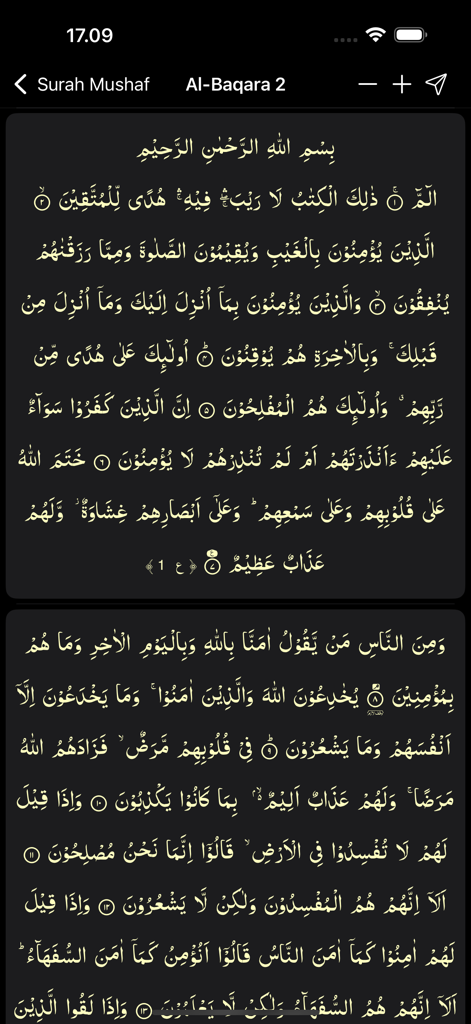 17.09
Surah Mushaf
Al-Baqara 2
بِسْمِ اللّٰهِ الرَّحْمٰنِ الرَّحِيْمِ
الٓمّٓ ۚ‏ ﴿۱﴾ ذٰلِكَ الْكِتٰبُ لَا رَيْبَ ۛۖ فِيْهِ ۛۚ هُدًى لِّلْمُتَّقِيْنَ ۙ‏ ﴿۲﴾
الَّذِيْنَ يُؤْمِنُوْنَ بِالْغَيْبِ وَيُقِيْمُوْنَ الصَّلٰوةَ وَمِمَّا رَزَقْنٰهُمْ
يُنْفِقُوْنَ ۙ‏ ﴿۳﴾ وَالَّذِيْنَ يُؤْمِنُوْنَ بِمَاۤ اُنْزِلَ اِلَيْكَ وَمَاۤ اُنْزِلَ مِنْ
قَبْلِكَ ۚ وَبِالْاٰخِرَةِ هُمْ يُوْقِنُوْنَ ؕ‏ ﴿۴﴾ اُولٰٓئِكَ عَلٰى هُدًى مِّنْ
رَّبِّهِمْ ۙ وَاُولٰٓئِكَ هُمُ الْمُفْلِحُوْنَ ‏ ﴿۵﴾ اِنَّ الَّذِيْنَ كَفَرُوْا سَوَآءٌ
عَلَيْهِمْ ءَاَنْذَرْتَهُمْ اَمْ لَمْ تُنْذِرْهُمْ لَا يُؤْمِنُوْنَ ‏ ﴿۶﴾ خَتَمَ اللّٰهُ
عَلٰى قُلُوْبِهِمْ وَعَلٰى سَمْعِهِمْ ؕ وَعَلٰٓى اَبْصَارِهِمْ غِشَاوَةٌ ۙ وَّلَهُمْ
عَذَابٌ عَظِيْمٌ ‏ ﴿۷﴾ ﴿ ع 1 ﴾
وَمِنَ النَّاسِ مَنْ يَّقُوْلُ اٰمَنَّا بِاللّٰهِ وَبِالْيَوْمِ الْاٰخِرِ وَمَا هُمْ
بِمُؤْمِنِيْنَ ۘ‏ ﴿۸﴾ يُخٰدِعُوْنَ اللّٰهَ وَالَّذِيْنَ اٰمَنُوْا ۚ وَمَا يَخْدَعُوْنَ اِلَّاۤ
اَنْفُسَهُمْ وَمَا يَشْعُرُوْنَ ؕ‏ ﴿۹﴾ فِىْ قُلُوْبِهِمْ مَّرَضٌ ۙ فَزَادَهُمُ اللّٰهُ
مَرَضًا ۚ وَلَهُمْ عَذَابٌ اَلِيْمٌ ۙ بِمَا كَانُوْا يَكْذِبُوْنَ ‏ ﴿۱۰﴾ وَاِذَا قِيْلَ
لَهُمْ لَا تُفْسِدُوْا فِى الْاَرْضِ ۙ قَالُوْۤا اِنَّمَا نَحْنُ مُصْلِحُوْنَ ‏ ﴿۱۱﴾
اَلَاۤ اِنَّهُمْ هُمُ الْمُفْسِدُوْنَ وَلٰكِنْ لَّا يَشْعُرُوْنَ ‏ ﴿۱۲﴾ وَاِذَا قِيْلَ
لَهُمْ اٰمِنُوْا كَمَاۤ اٰمَنَ النَّاسُ قَالُوْۤا اَنُؤْمِنُ كَمَاۤ اٰمَنَ السُّفَهَآءُ ؕ
اَلَاۤ اِنَّهُمْ هُمُ السُّفَهَآءُ وَلٰكِنْ لَّا يَعْلَمُوْنَ ‏ ﴿۱۳﴾ وَاِذَا لَقُوا الَّذِيْنَ